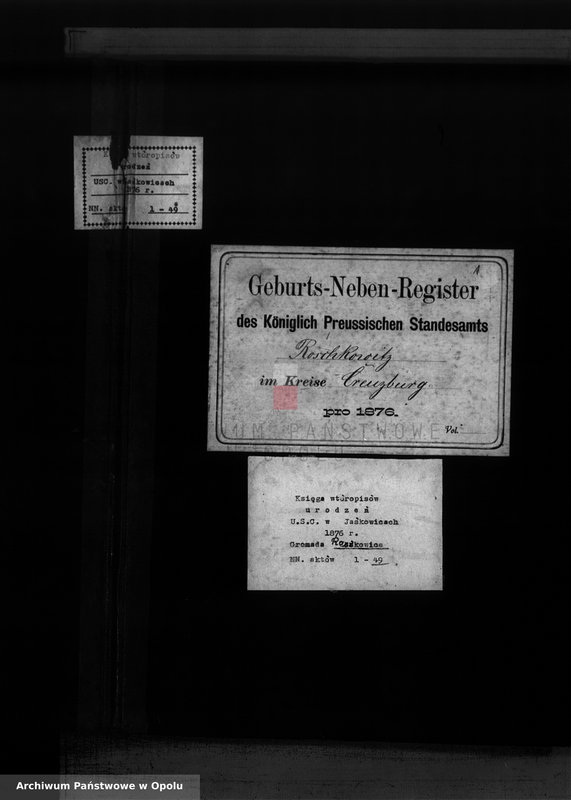 wtóropisów
urodzeń
USC. w Jaśkowicach
1876 r.
NN. aktów 1 - 49
1
Geburts-Neben-Register
des Königlich Preussischen Standesamts
Roschkowitz
im Kreise Creuzburg.
pro 1876.
Vol.
UM PAŃSTWOWE
OPOLU
Księga wtóropisów
urodzeń
U.S.C. w Jaśkowicach
1876 r.
Gromada Jaśkowice
NN. aktów 1 - 49
Archiwum Państwowe w Opolu